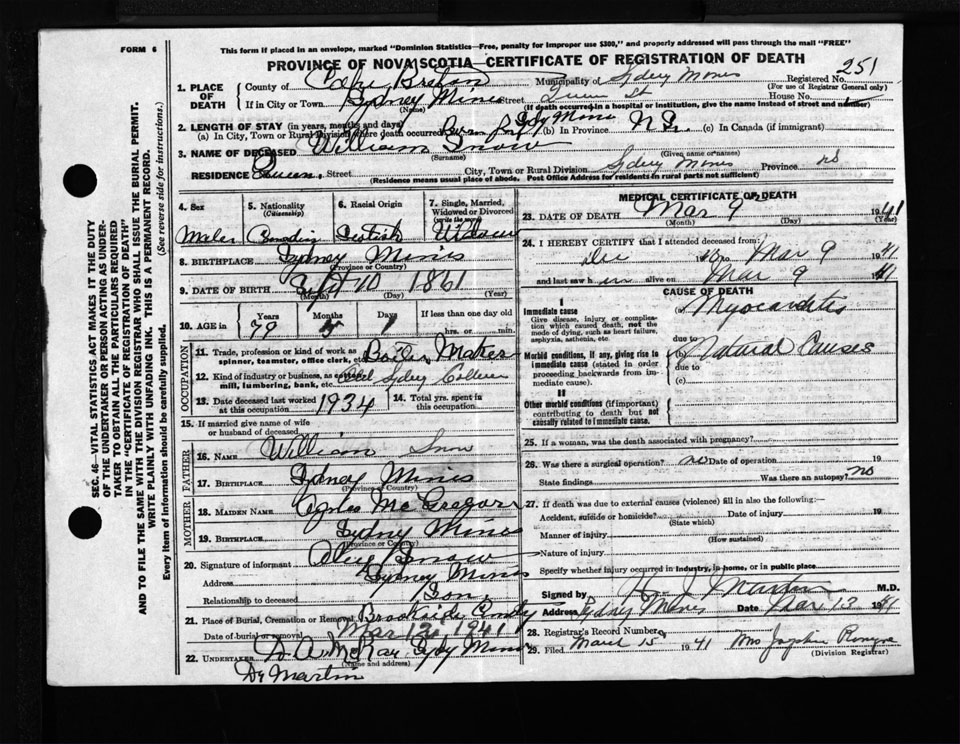 FORM 6
This form if placed in an envelope, marked "Dominion Statistics—Free, penalty for improper use $300," and properly addressed will pass through the mail "FREE"
PROVINCE OF NOVA SCOTIA—CERTIFICATE OF REGISTRATION OF DEATH
251
1. PLACE OF DEATH
County of Cape Breton Municipality of Sydney Mines Registered No.
(For use of Registrar General only)
If in City or Town Sydney Mines Street Queen St House No.
(Name) (If death occurred in a hospital or institution, give the name instead of street and number)
2. LENGTH OF STAY (in years, months and days)
(a) In City, Town or Rural Division where death occurred Born Syd Mines (b) In Province N.S. (c) In Canada (if immigrant)
3. NAME OF DECEASED William Snow
(Surname) (Given name or names)
RESIDENCE Queen Street City, Town or Rural Division Sydney Mines Province NS
(Residence means usual place of abode. Post Office Address for residents in rural parts not sufficient)
4. Sex
5. Nationality (Citizenship)
6. Racial Origin
7. Single, Married, Widowed or Divorced (write the word)
Male Canadian Scotish Widower
8. BIRTHPLACE Sydney Mines
(Province or Country)
9. DATE OF BIRTH Sept 10 1861
(Month) (Day) (Year)
10. AGE in Years Months Days If less than one day old
79 5 hrs. or min.
OCCUPATION
11. Trade, profession or kind of work as spinner, teamster, office clerk, etc. Boiler Maker
12. Kind of industry or business, as cotton mill, lumbering, bank, etc. Old Sydney
13. Date deceased last worked at this occupation 1934
14. Total yrs. spent in this occupation
15. If married give name of wife or husband of deceased
FATHER
16. NAME William Snow
17. BIRTHPLACE Sydney Mines
(Province or Country)
MOTHER
18. MAIDEN NAME Agnes McGregor
19. BIRTHPLACE Sydney Mines
(Province or Country)
20. Signature of informant Alex Snow
Address Sydney Mines
Relationship to deceased Son
21. Place of Burial, Cremation or Removal Brookside Cmty
Date of burial or removal Mar 12 1941
22. UNDERTAKER D. A. McKay Sydy Mines
(Name and address)
Dr Martin
MEDICAL CERTIFICATE OF DEATH
23. DATE OF DEATH Mar 9 1941
(Month) (Day) (Year)
24. I HEREBY CERTIFY that I attended deceased from:
Dec to Mar 9 1941
and last saw h im alive on Mar 9 1941
CAUSE OF DEATH
I
Immediate cause
Give disease, injury or complication which caused death, not the mode of dying, such as heart failure, asphyxia, asthenia, etc.
(a) Myocarditis
due to
Morbid conditions, if any, giving rise to immediate cause (stated in order proceeding backwards from immediate cause).
(b) Natural Causes
due to
(c)
II
Other morbid conditions (if important) contributing to death but not causally related to immediate cause.
25. If a woman, was the death associated with pregnancy?
26. Was there a surgical operation? no Date of operation 19
State findings Was there an autopsy? no
27. If death was due to external causes (violence) fill in also the following:—
Accident, suicide or homicide? Date of injury 19
(State which)
Manner of injury
(How sustained)
Nature of injury
Specify whether injury occurred in industry, in home, or in public place
Signed by H. J. Martin M.D.
Address Sydney Mines Date Mar 13 1941
28. Registrar's Record Number
29. Filed March 15 1941 Mrs
(Division Registrar)
SEC. 46—VITAL STATISTICS ACT MAKES IT THE DUTY
OF THE UNDERTAKER OR PERSON ACTING AS UNDER-
TAKER TO OBTAIN ALL THE PARTICULARS REQUIRED
IN THE "CERTIFICATE OF REGISTRATION OF DEATH"
AND TO FILE THE SAME WITH THE DIVISION REGISTRAR WHO SHALL ISSUE THE BURIAL PERMIT.
WRITE PLAINLY WITH UNFADING INK. THIS IS A PERMANENT RECORD.
Every item of information should be carefully supplied. (See reverse side for instructions.)